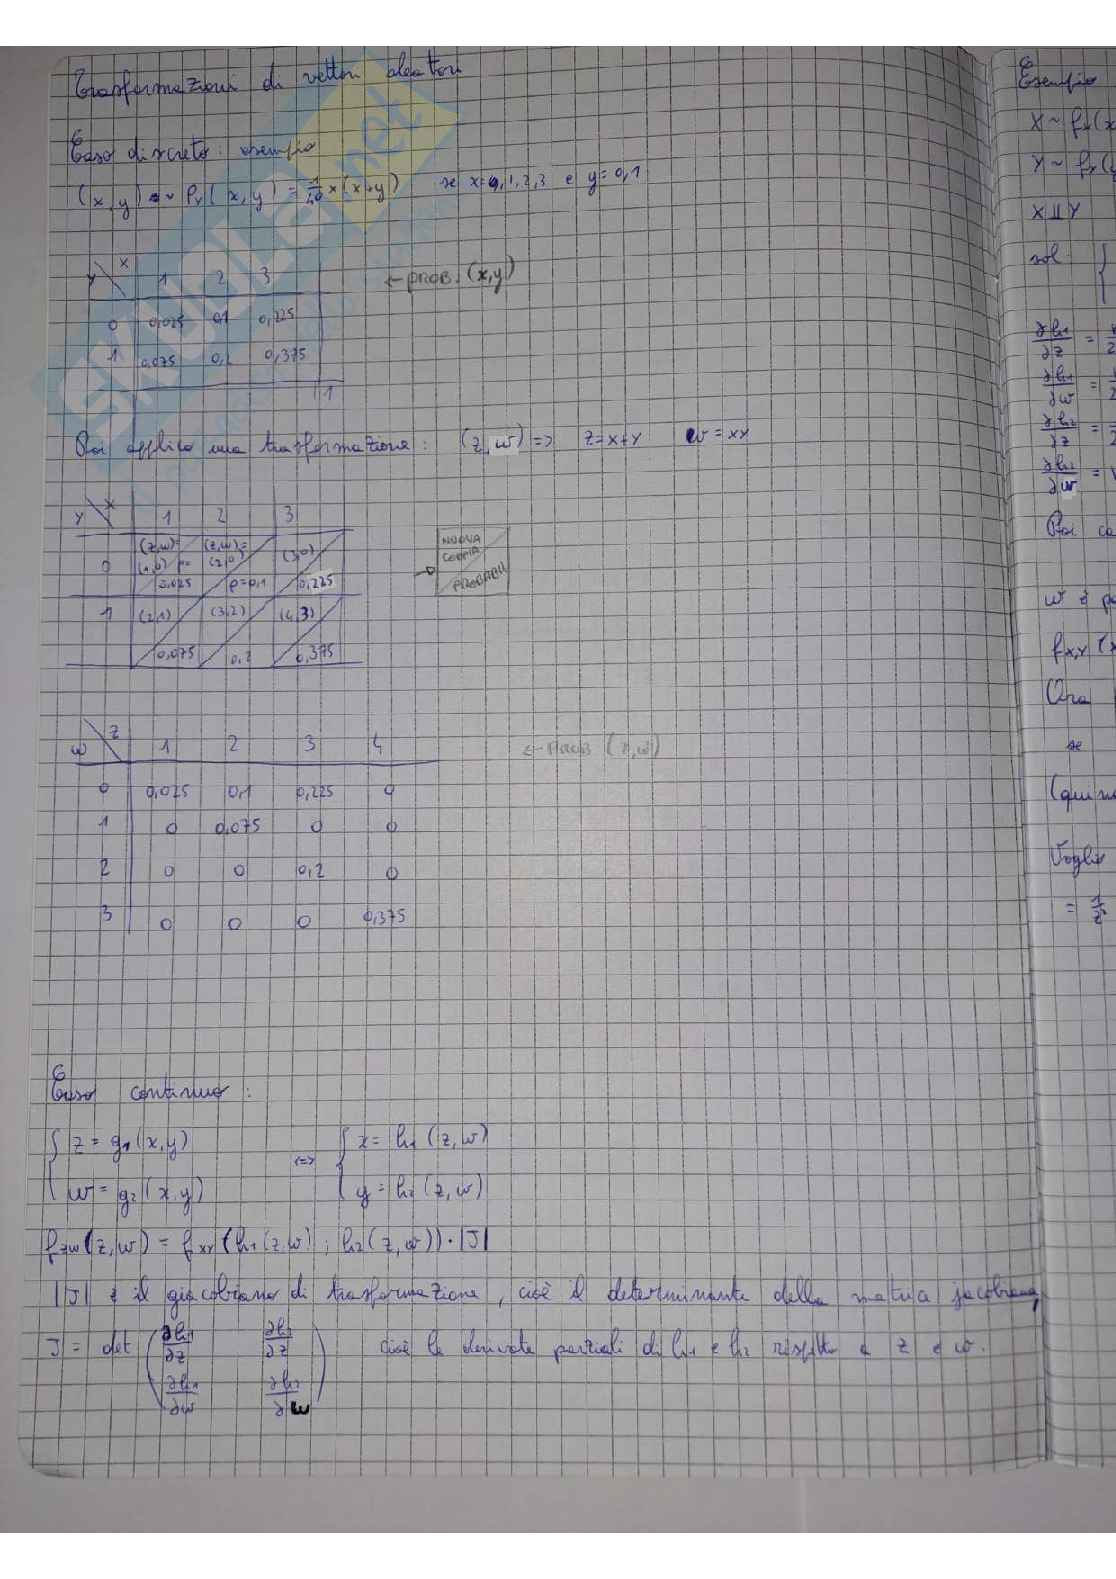 Trasformazioni di vettori aleatori
Caso discreto: esempio
(x,y) ~ Pr(x,y) = 1/40 x(x+y) se x=0,1,2,3 e y=0,1
Y X 1 2 3 ← PROB. (x,y)
0 0,025 0,1 0,225
1 0,075 0,2 0,375
1
Poi applico una trasformazione: (z,w) => z=x+y w=xy
Y X 1 2 3
0 (z,w)= (1,0) p= 0,025 (z,w)= (2,0) p=0,1 (3,0) 0,225
NUOVA COPPIA PROBABIL
1 (2,1) 0,075 (3,2) 0,2 (4,3) 0,375
w z 1 2 3 4 ← PROB (z,w)
0 0,025 0,1 0,225 0
1 0 0,075 0 0
2 0 0 0,2 0
3 0 0 0 0,375
Caso continuo:
{ z = g1(x,y) <=> { x = h1(z,w)
w = g2(x,y) y = h2(z,w)
fzw(z,w) = fxy(h1(z,w); h2(z,w)) · |J|
|J| è il giacobiano di trasformazione, cioè il determinante della matrice jacobiana,
J = det ( ∂h1/∂z ∂h2/∂z cioè le derivate parziali di h1 e h2 rispetto a z e w.
∂h1/∂w ∂h2/∂w )
Esempio
X ~ fx(x
Y ~ fy(y
X ⊥⊥ Y
sol: {
∂h1/∂z =
∂h1/∂w =
∂h2/∂z =
∂h2/∂w =
Poi
w è
fx,y (x
Ora
se
(quin
Voglio
= 1/2
SKUOLA.net